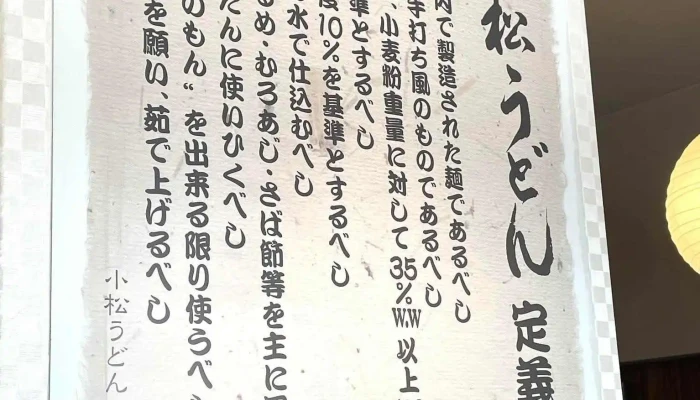 松うどん 定義
内で製造された麺であるべし
手打ち風のものであるべし
、小麦粉重量に対して35%W.W以上
準とするべし
度10%を基準とするべし
水で仕込むべし
るめ・むろあじ・さば節等を主に
だんに使いひくべし
のもん〝を出来る限り使うべ
を願い、茹で上げるべし
小松うどん